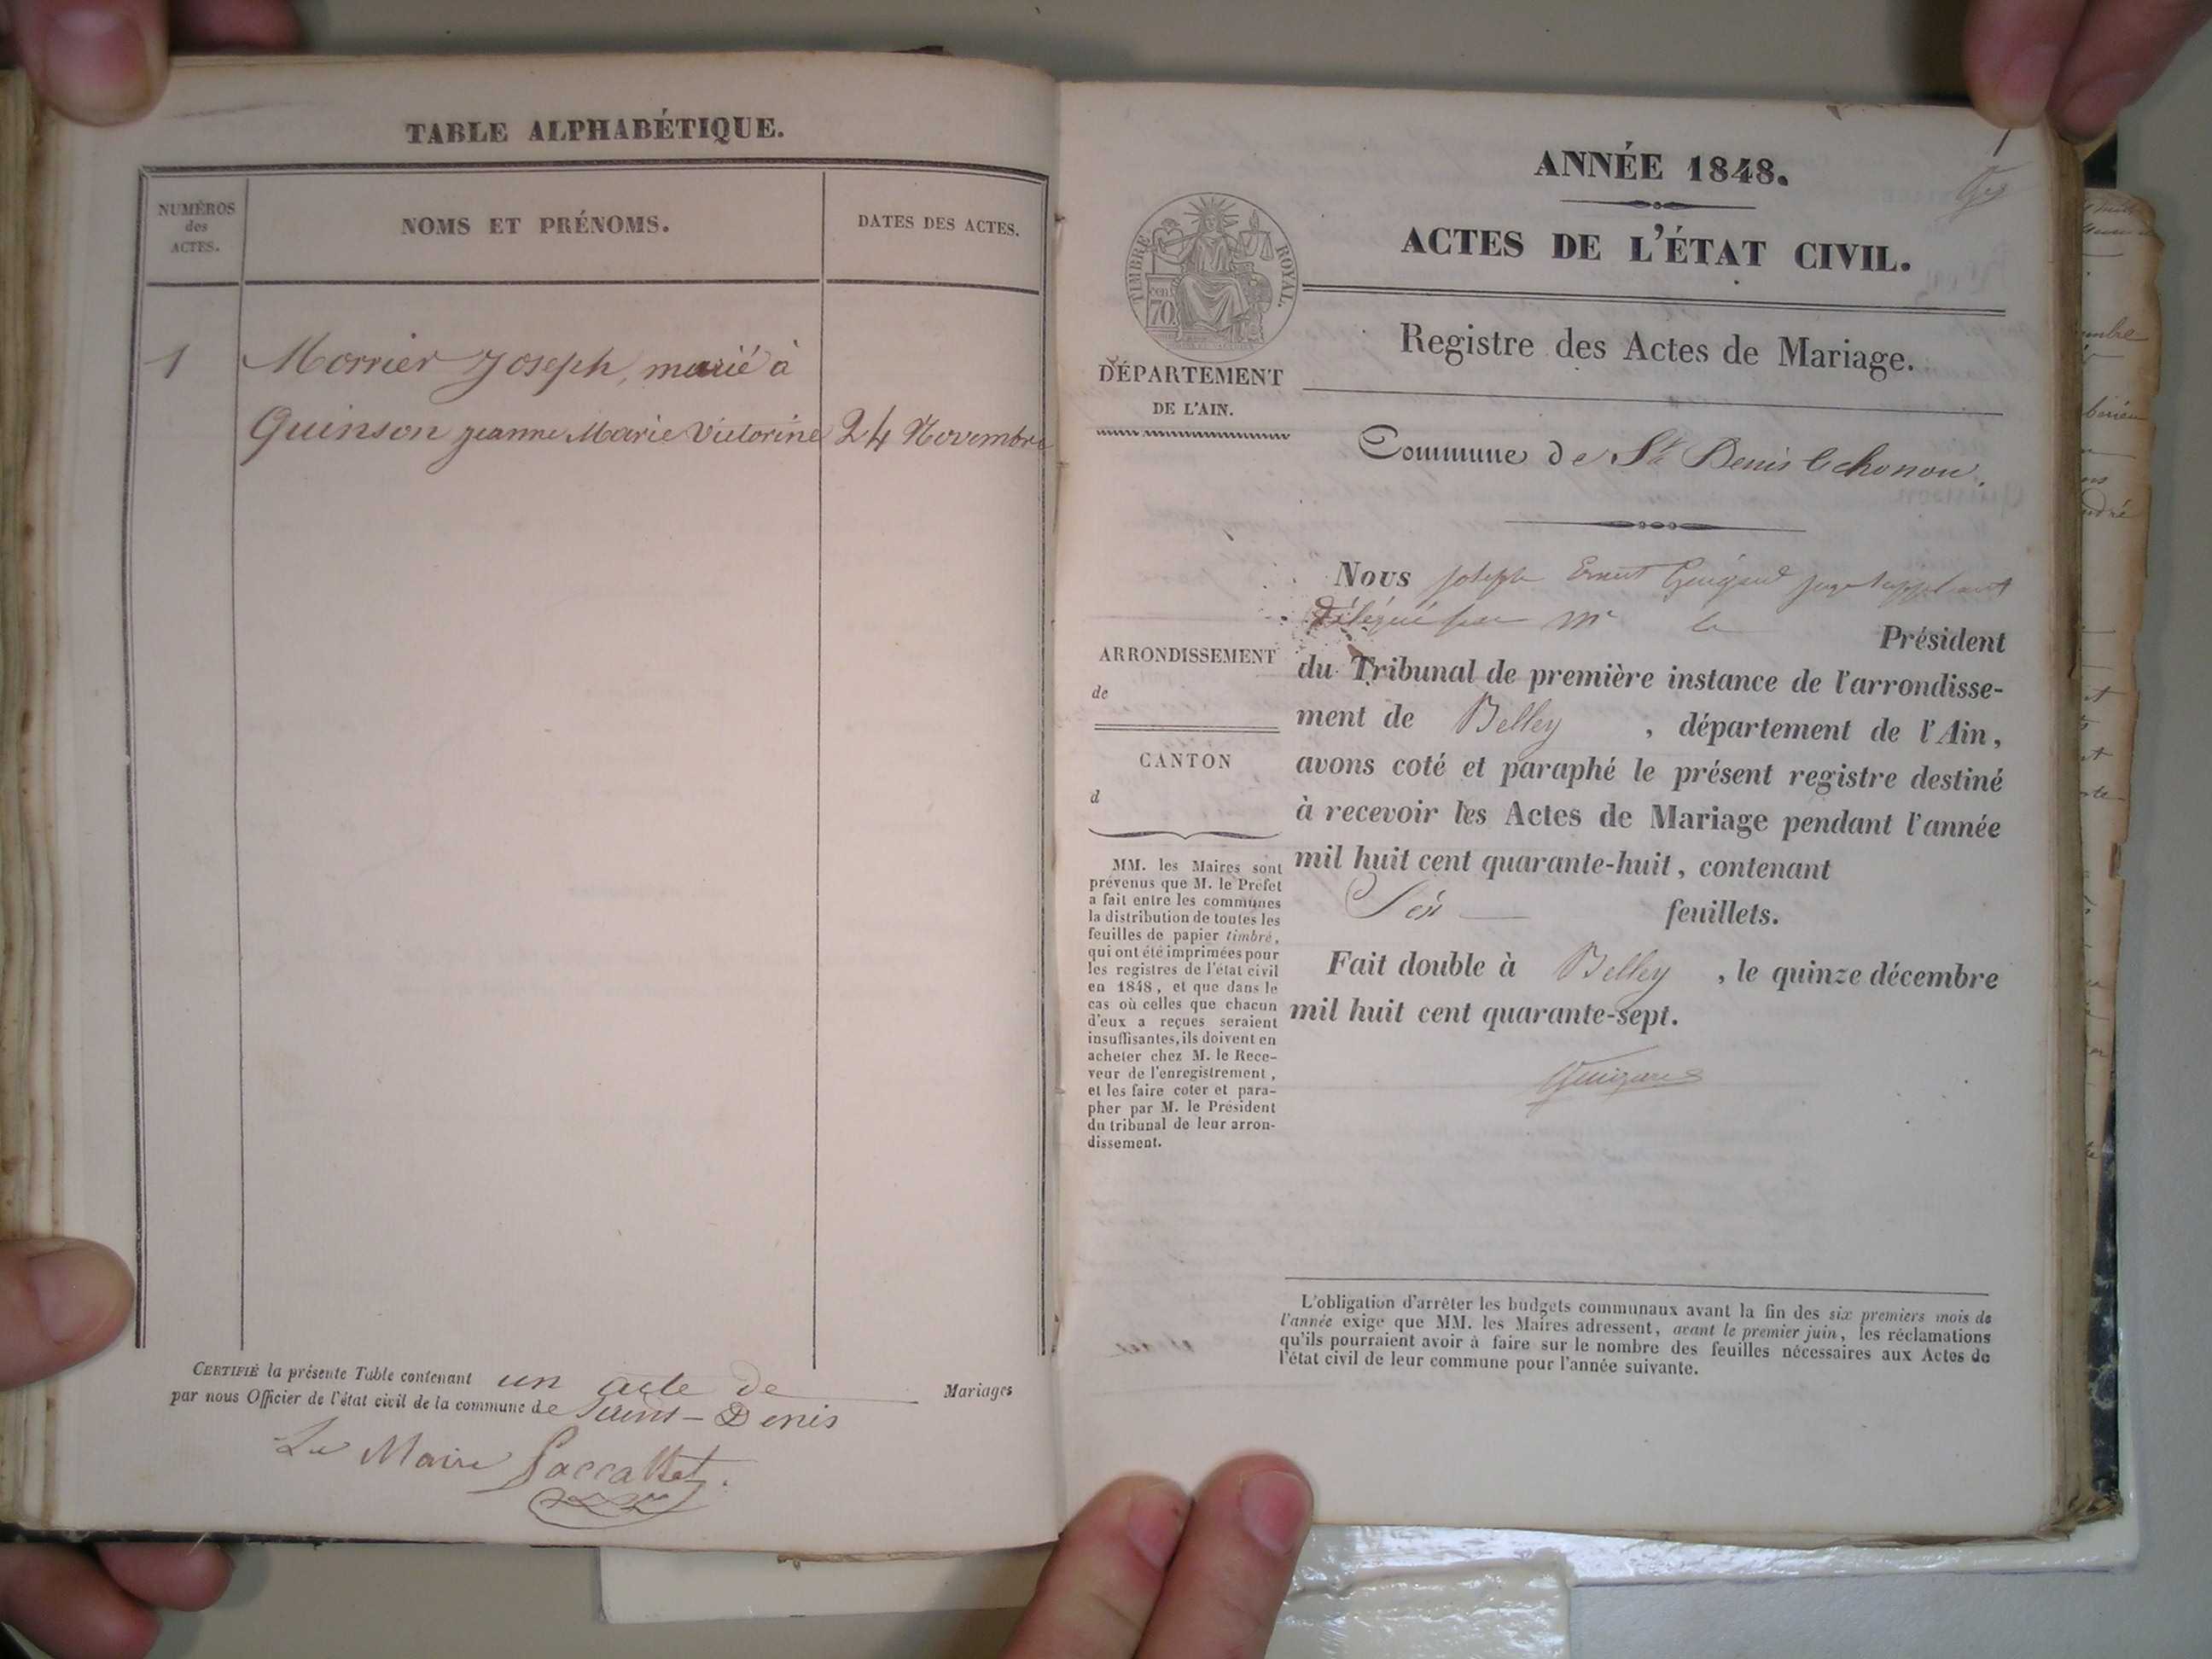 TABLE ALPHABÉTIQUE.
NUMÉROS
des
ACTES.
NOMS ET PRÉNOMS.
DATES DES ACTES.
1 Morrier Joseph, marié à
Quinson jeanne Marie Victorine 24 Novembre
CERTIFIÉ la présente Table contenant un acte de Mariages
par nous Officier de l'état civil de la commune de Saint-Denis
Le Maire
1
ANNÉE 1848.
ACTES DE L'ÉTAT CIVIL.
TIMBRE ROYAL.
cen.
70.
Registre des Actes de Mariage.
DÉPARTEMENT
DE L'AIN.
Commune de St Denis le chonon.
Nous joseph Ernest juge suppléant
Délégué par Mr le Président
du Tribunal de première instance de l'arrondisse-
ment de Belley , département de l'Ain,
avons coté et paraphé le présent registre destiné
à recevoir les Actes de Mariage pendant l'année
mil huit cent quarante-huit, contenant
Six feuillets.
Fait double à Belley , le quinze décembre
mil huit cent quarante-sept.
ARRONDISSEMENT
de
CANTON
d
MM. les Maires sont
prévenus que M. le Préfet
a fait entre les communes
la distribution de toutes les
feuilles de papier timbré,
qui ont été imprimées pour
les registres de l'état civil
en 1848, et que dans le
cas où celles que chacun
d'eux a reçues seraient
insuffisantes, ils doivent en
acheter chez M. le Rece-
veur de l'enregistrement,
et les faire coter et para-
pher par M. le Président
du tribunal de leur arron-
dissement.
L'obligation d'arrêter les budgets communaux avant la fin des six premiers mois de
l'année exige que MM. les Maires adressent, avant le premier juin, les réclamations
qu'ils pourraient avoir à faire sur le nombre des feuilles nécessaires aux Actes de
l'état civil de leur commune pour l'année suivante.